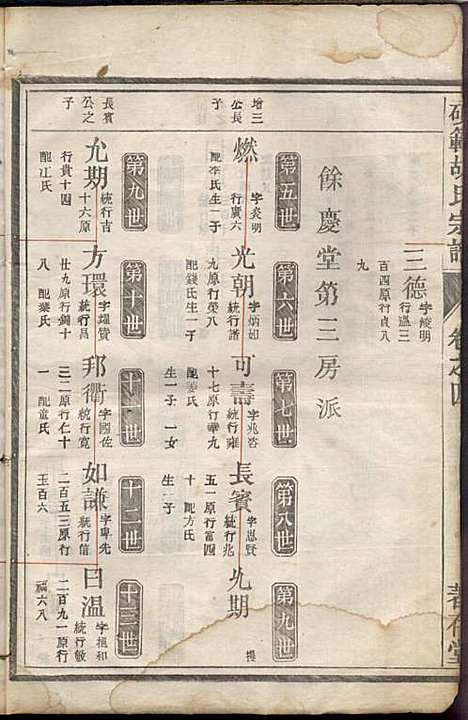 範胡氏宗譜
卷之四
三德
字燧明
行溫三
百四原行貞八
九
餘慶堂第三房派
第五世
第六世
第七世
第八世
第九世
增三
公長
子
燃
字炎明
行廣六
配李氏生一子
光朝
字炳如
統行譜
九原行榮八
配錢氏生一子
可壽
字兆咨
統行雍
十七原行華九
配姜氏
生一子一女
長賓
字恩賢
統行兆
五一原行富四
十配方氏
生一子
允期
提
第九世
第十世
十一世
十二世
十三世
長賓
公之
子
允期
統行吉
十六原
行貴十四
配江氏
方環
字耀賓
統行昌
廿九原行錫十
八配葉氏
邦衢
字國佐
統行寬
三二原行仁十
一配童氏
如謙
字卑先
統行信
二百五三原行
玉百六
日溫
字抱和
統行敏
二百九一原行
福六八